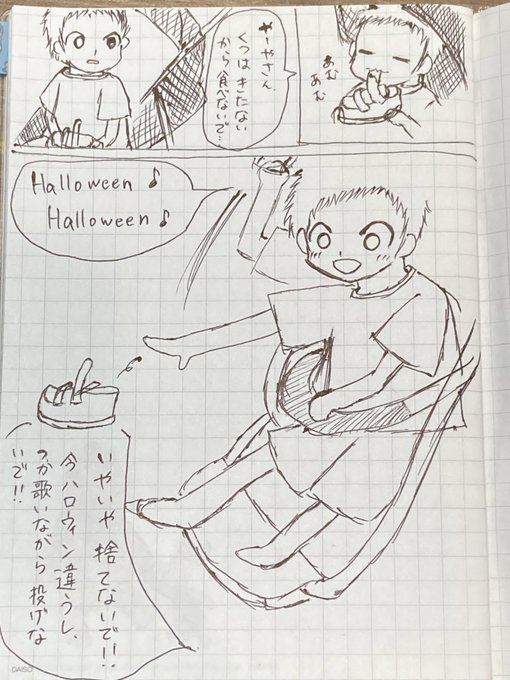 あむ
あむ
やーやさん
くつは きたない
から 食べないで…
Halloween♪
Halloween♪
いやいや 捨てないで!!
今ハロウィン違うし、
つか歌いながら 投げな
いで!!
DAISO